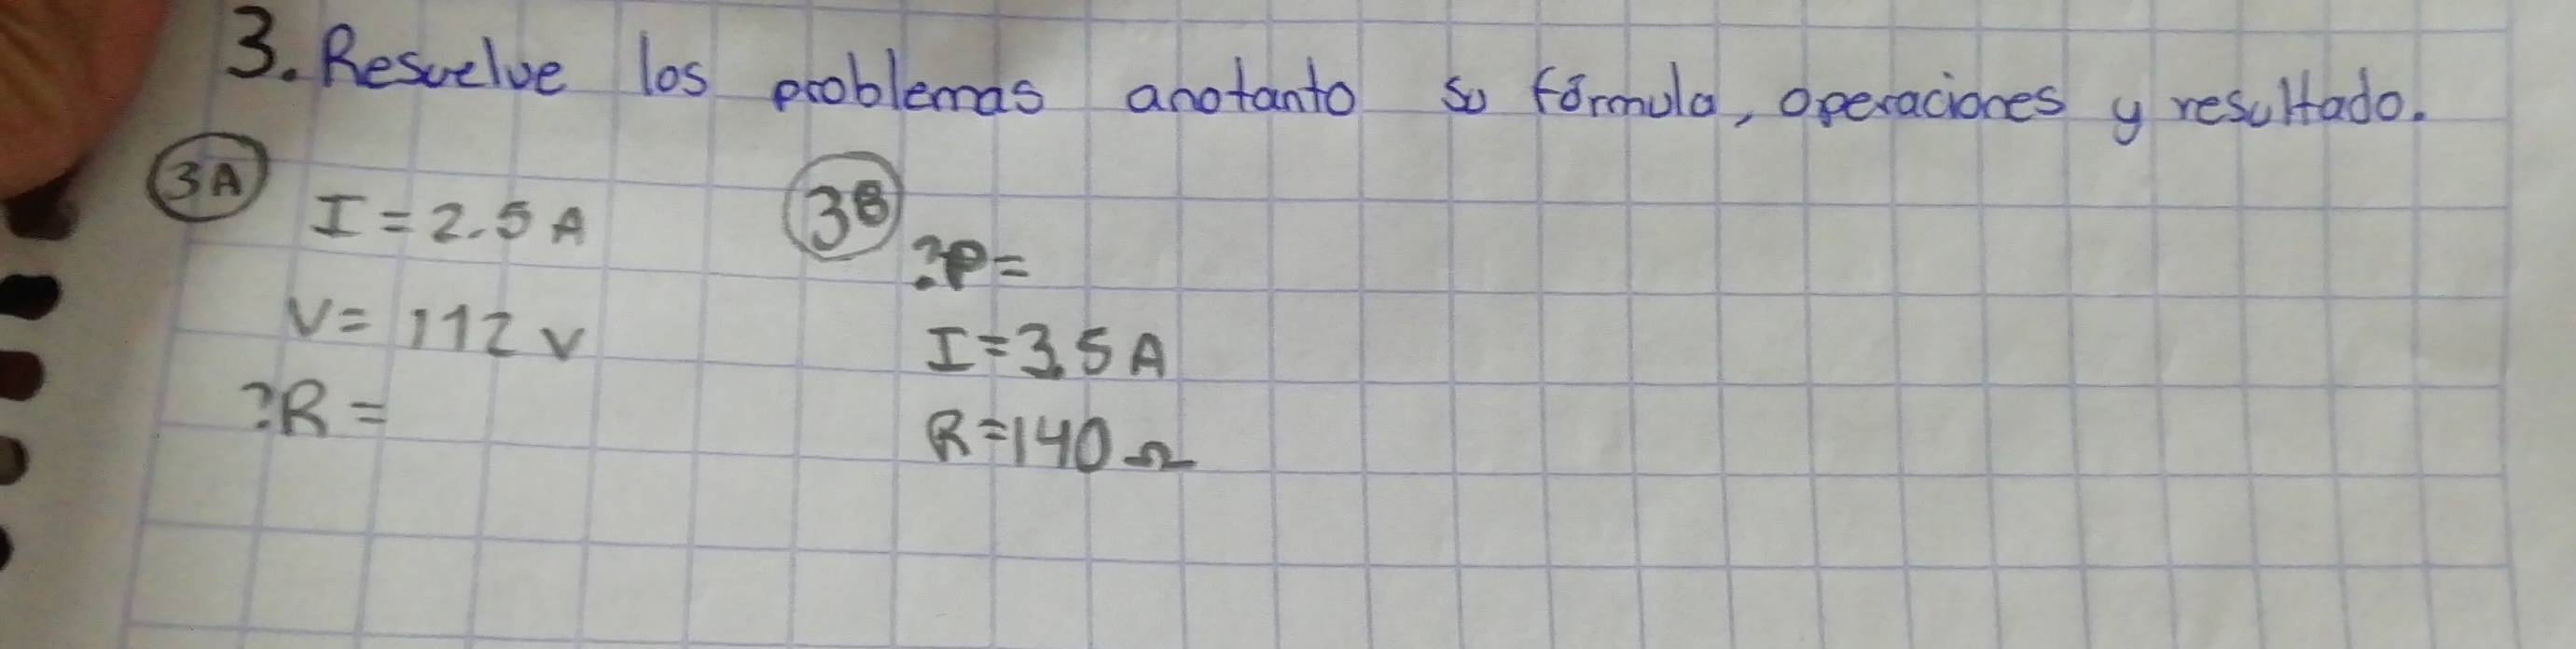 3. Resuelve los problemas anotanto su fórmula, operaciones y resultado.
3A
I = 2.5 A
V = 112 V
?R =
3B
?P =
I = 3.5 A
R = 140 Ω